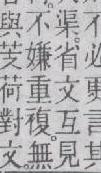 不必更言其
渠省文互見
不嫌重複無
與芰荷對文